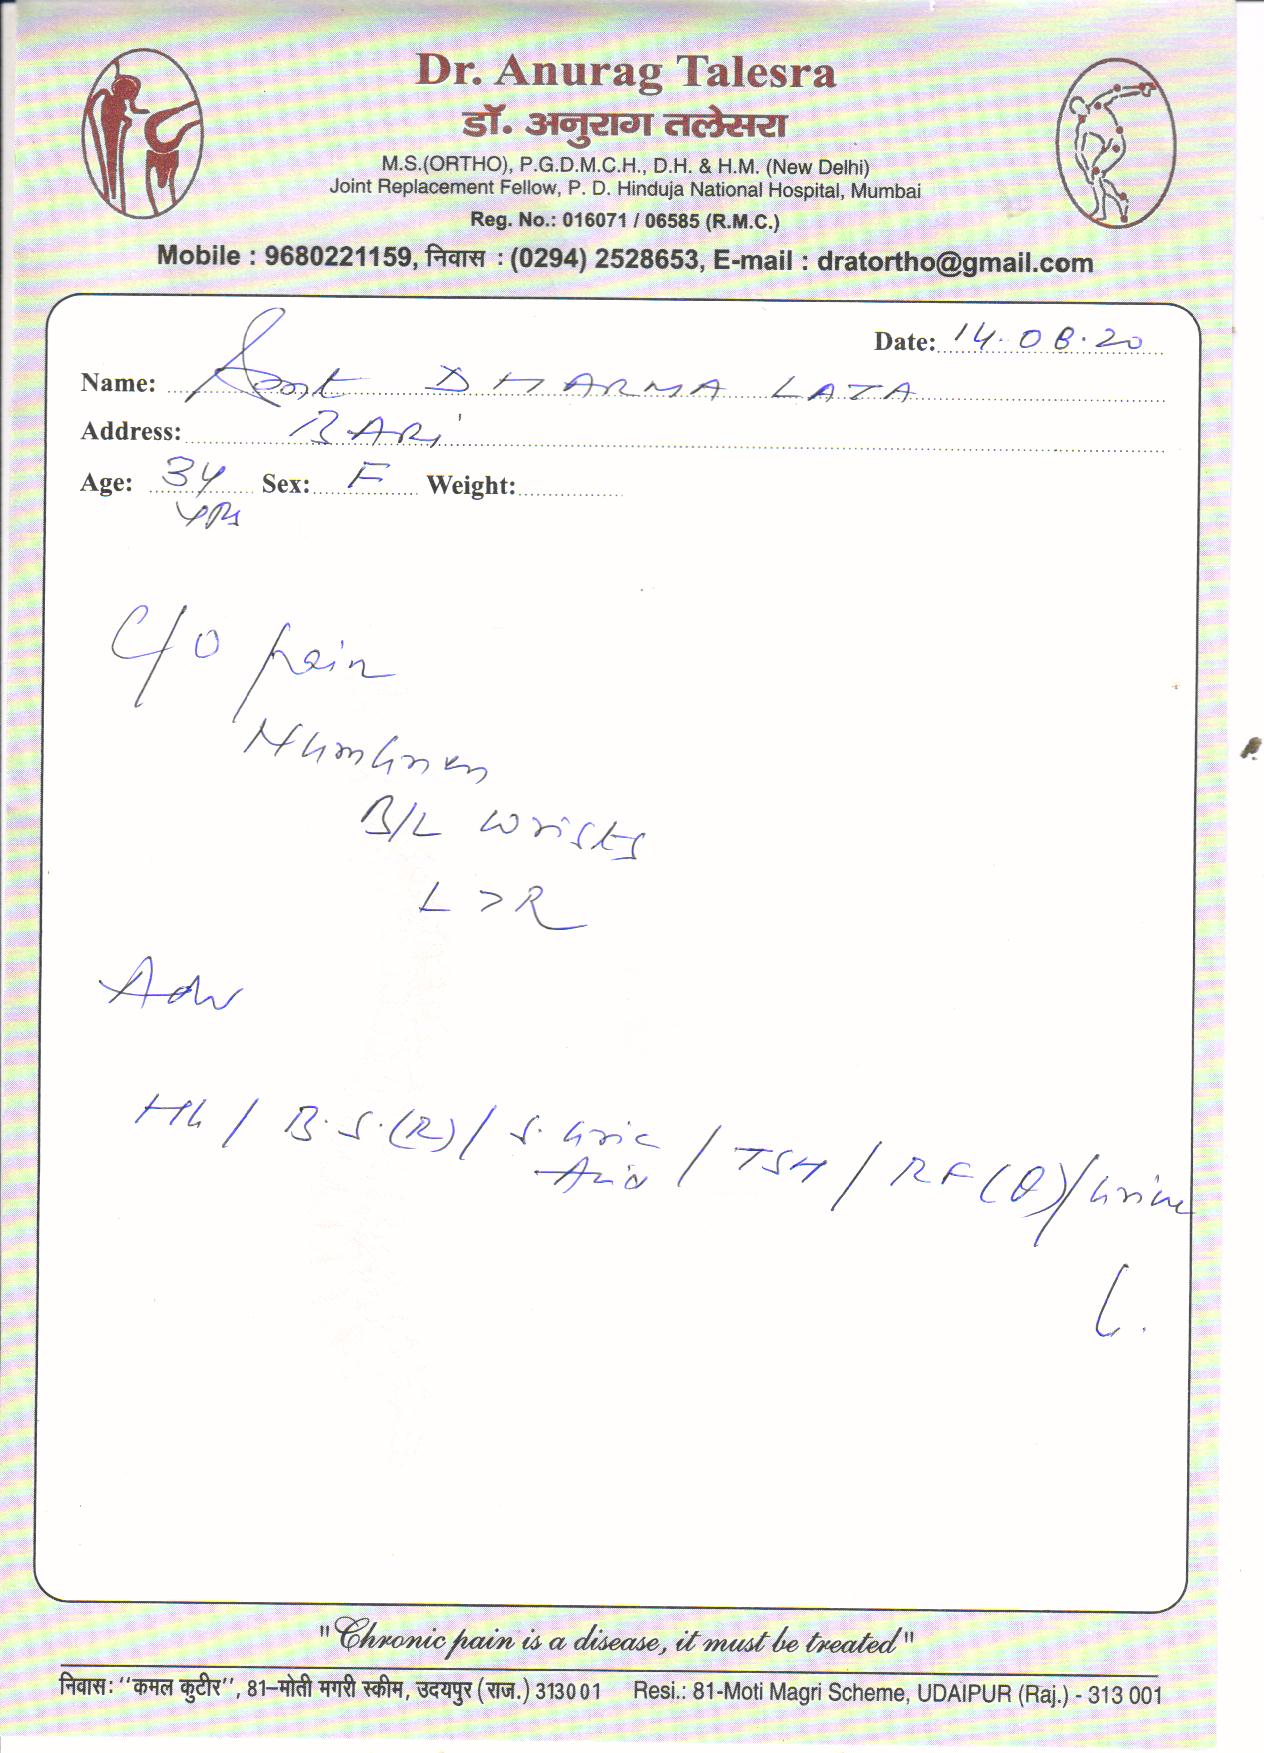 Dr. Anurag Talesra
डॉ. अनुराग तलेसरा
M.S.(ORTHO), P.G.D.M.C.H., D.H. & H.M. (New Delhi)
Joint Replacement Fellow, P. D. Hinduja National Hospital, Mumbai
Reg. No.: 016071 / 06585 (R.M.C.)
Mobile : 9680221159, निवास : (0294) 2528653, E-mail : dratortho@gmail.com
Date: 14.08.20
Name: Smt DHARMA LATA
Address: BARI
Age: 34 Sex: F Weight:
yrs
C/O pain
Numbness
B/L wrists
L > R
Adv
Hb / B.S.(R) / S. Uric / TSH / RF(Q) / Urine
Acid
"Chronic pain is a disease, it must be treated"
निवास: ''कमल कुटीर'', 81–मोती मगरी स्कीम, उदयपुर (राज.) 313001 Resi.: 81-Moti Magri Scheme, UDAIPUR (Raj.) - 313 001